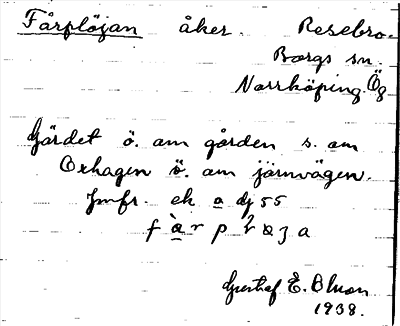 Fårplöjan åker. Resebro.
Borgs sn.
Norrköping. Ög
Gärdet ö. om gården s. om
Oxhagen ö. om järnvägen.
Jmfr. ek a dj 55
Gustaf E. Blom
1938.